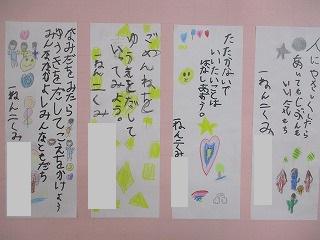 なみだをみたら
ゆうきをだしてこえをかけよう
みんななかよしみんなともだち
一ねん二くみ
ごめんねを
ゆうきをだして
いってみよう。
一ねん二くみ
たたかないで
いいたいことは
はなしあおう。
一ねん二くみ
人にやさしくしたら
あいてもじぶんも
いい気もち
一ねん二くみ